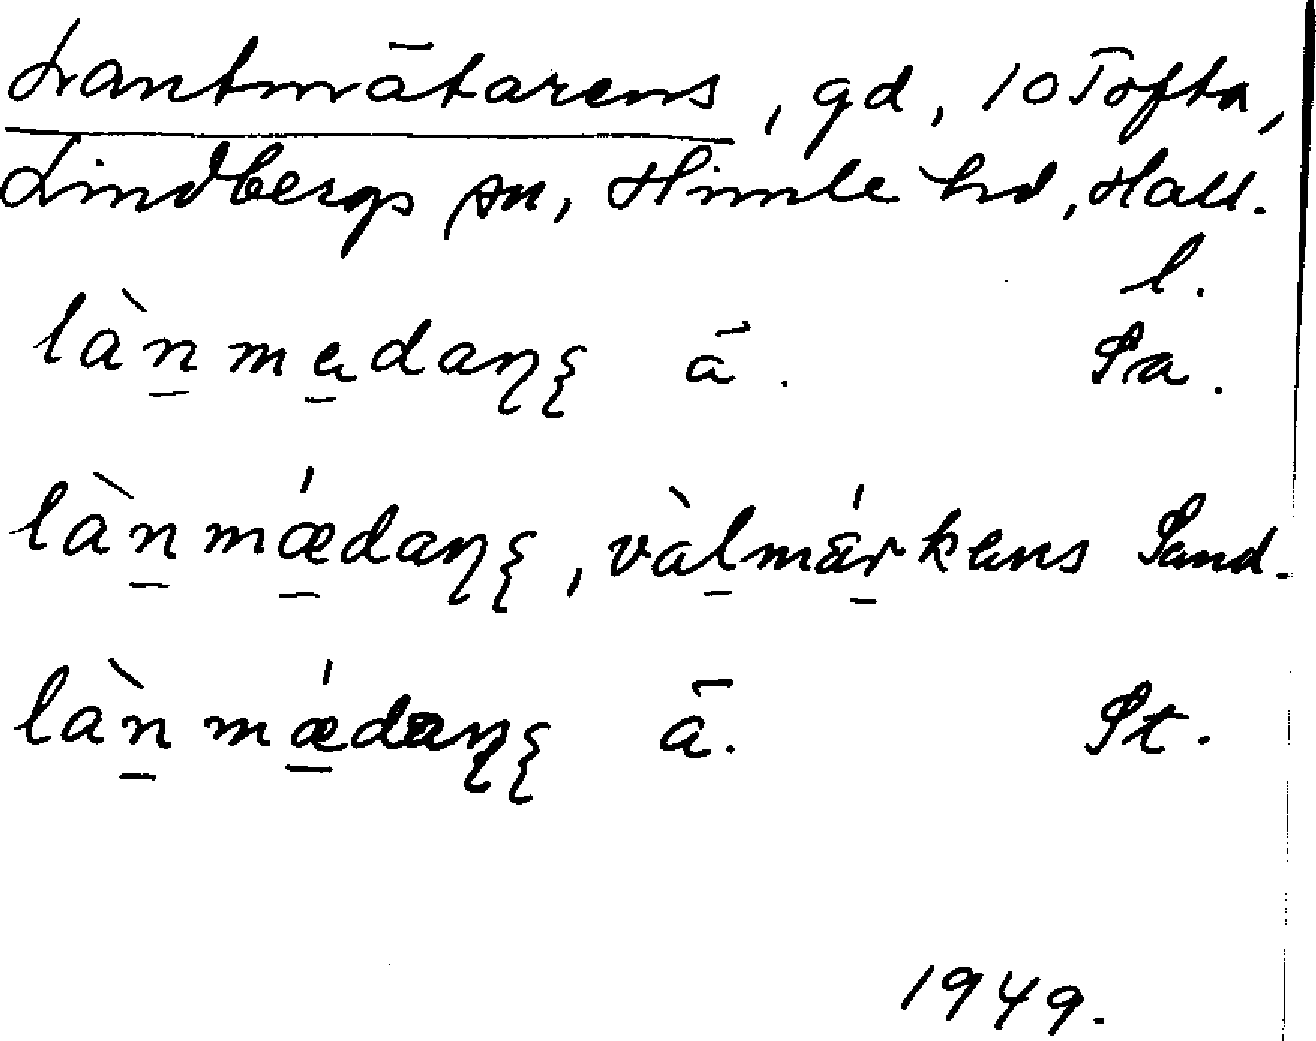 Lantmätarens, gd, 10 Tofta,
Lindbergs sn, Himle hd, Hall.
l.
làn̠me̠daɳξ ä. Sa.
làn̠mǽ̠daɳξ, vàl̠mä́r̠kens Sand.
làn̠mǽ̠daɳξ ä. St.
1949.